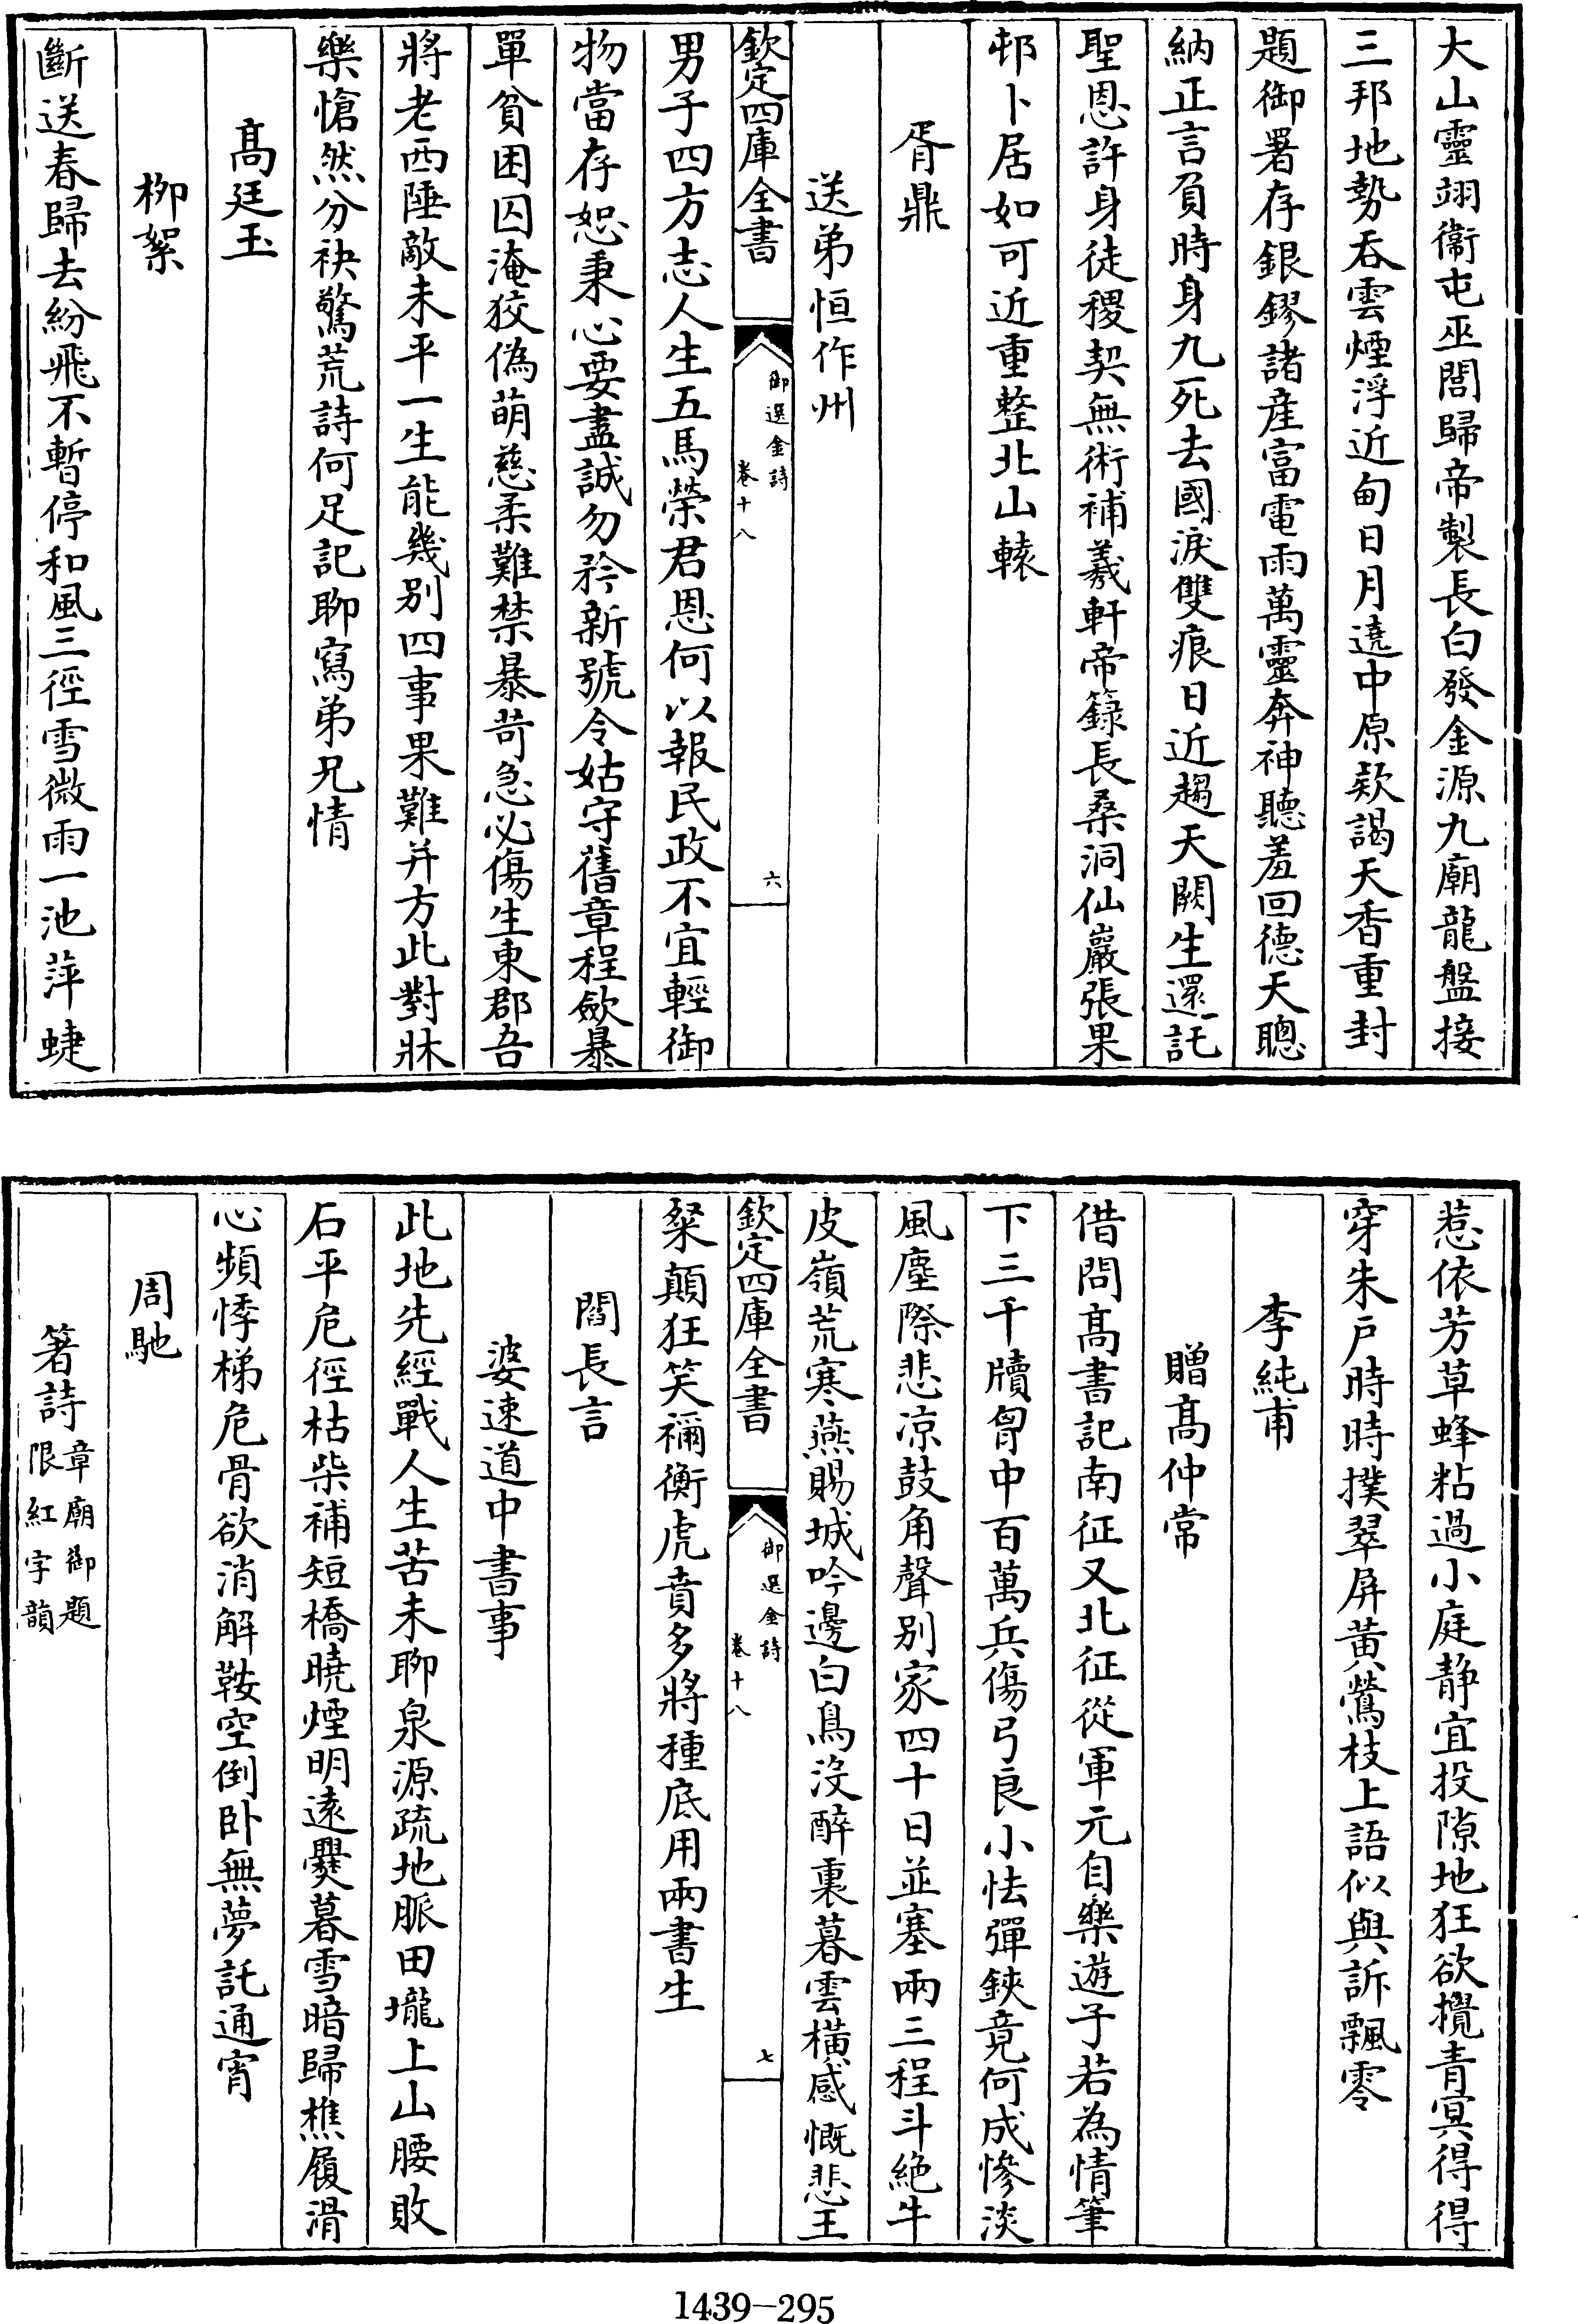 大山靈翊衞屯巫閭歸帝製長白發金源九廟龍盤接
三邦地勢吞雲煙浮近甸日月遶中原欵謁天香重封
題御署存銀鏐諸產富電雨萬靈奔神聽羞回德天聰
納正言負時身九死去國淚雙痕日近趨天闕生還託
聖恩許身徒稷契無術補羲軒帝籙長桑洞仙巖張果
邨卜居如可近重整北山轅
胥鼎
送弟恒作州
欽定四庫全書
御選金詩
卷十八
六
男子四方志人生五馬榮君恩何以報民政不宜輕御
物當存恕秉心要盡誠勿矜新號令姑守舊章程歛暴
單貧困囚淹狡偽萌慈柔難禁暴苛急必傷生東郡吾
將老西陲敵未平一生能幾别四事果難并方此對牀
樂愴然分袂驚荒詩何足記聊寫弟兄情
髙廷玉
柳絮
斷送春歸去紛飛不暫停和風三徑雪微雨一池萍蜨
惹依芳草蜂粘過小庭静宜投隙地狂欲攪青冥得得
穿朱戸時時撲翠屏黄鶯枝上語似與訴飄零
李純甫
贈髙仲常
借問髙書記南征又北征從軍元自樂遊子若為情筆
下三千牘胷中百萬兵傷弓良小怯彈鋏竟何成慘淡
風塵際悲凉鼓角聲别家四十日並塞兩三程斗絶牛
皮嶺荒寒燕賜城吟邊白鳥没醉裏暮雲橫感慨悲王
粲顛狂笑禰衡虎賁多將種底用兩書生
欽定四庫全書
御選金詩
卷十八
七
閻長言
婆速道中書事
此地先經戰人生苦未聊泉源疏地脈田壠上山腰敗
石平危徑枯柴補短橋曉煙明遠爨暮雪暗歸樵履滑
心頻悸梯危骨欲消解鞍空倒卧無夢託通宵
周馳
箸詩章廟御題
限紅字韻
1439-295